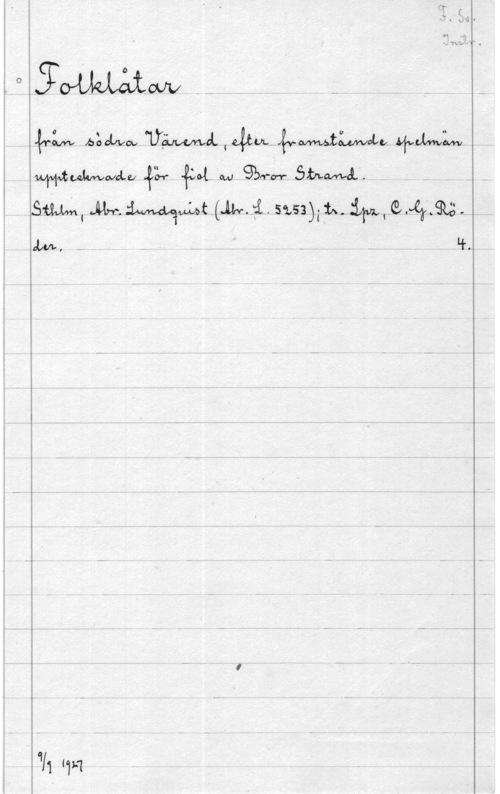 F. So.
Instr.
Folklåtar
från södra Värend, efter framstående spelmän
upptecknade för fiol av Bror Strand.
Sthlm, Abr. Lundquist (Abr. L. 5253); tr. Lpz, C. G. Rö-
der. 4.
9/9 1927